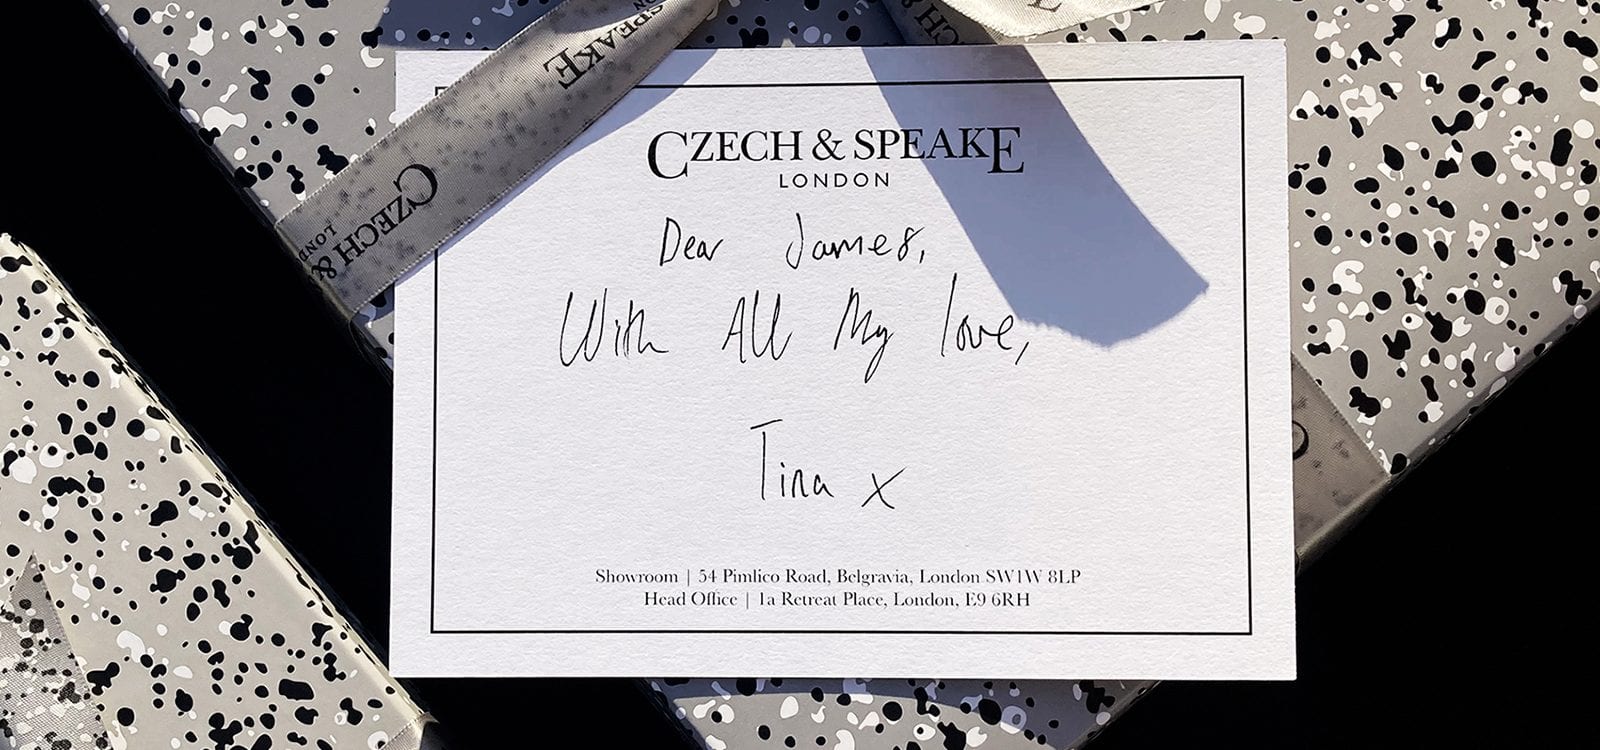 CZECH & SPEAKE
LONDON
Dear James,
With All My love,
Tina x
Showroom | 54 Pimlico Road, Belgravia, London SW1W 8LP
Head Office | 1a Retreat Place, London, E9 6RH
SPEAKE
CZECH &